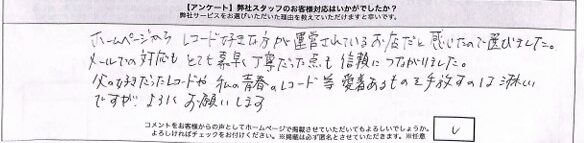 【アンケート】弊社スタッフのお客様対応はいかがでしたか？
弊社サービスをお選びいただいた理由を教えていただけますと幸いです。
ホームページから レコード好きな方が運営されているお店だと 感じたので選びました。
メールでの対応も とても素早く丁寧だった点も 信頼につながりました。
父の好きだったレコードや 私の青春のレコード等 愛着あるものを手放すのは 淋しい
ですが よろしく お願いします
コメントをお客様からの声としてホームページで掲載させていただいてもよろしいでしょうか。
よろしければチェックをお付けください。※掲載は必ず匿名とさせていただきます。※任意